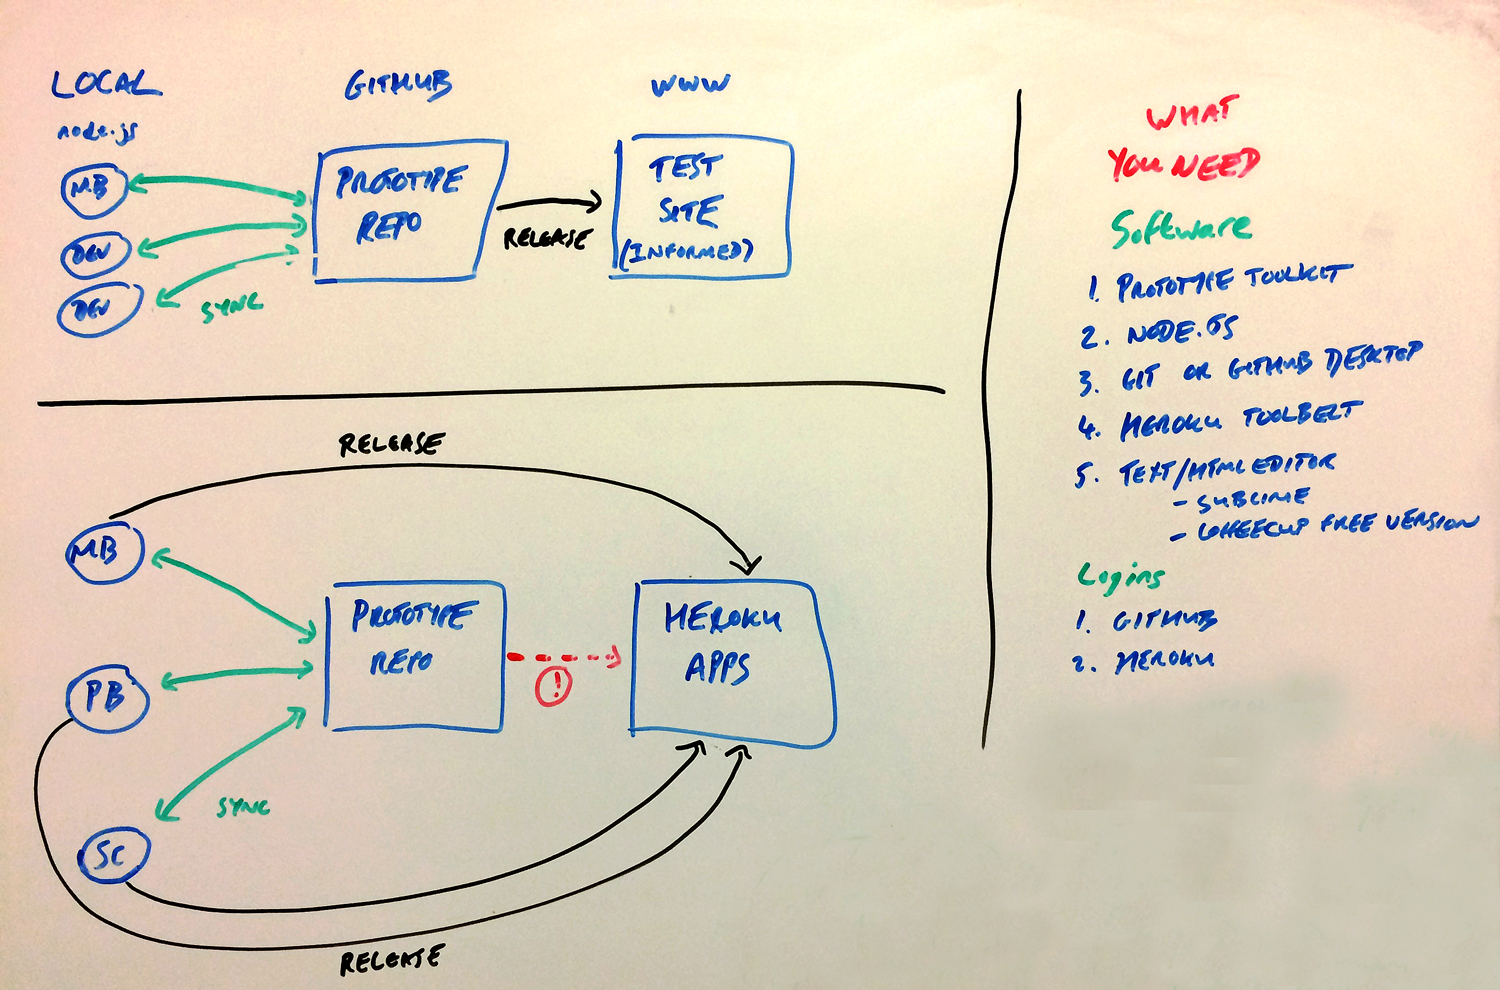 LOCAL
GITHUB
WWW
node.js
MB
DEV
DEV
SYNC
PROTOTYPE
REPO
RELEASE
TEST
SITE
(INFORMED)
RELEASE
MB
PB
SC
SYNC
PROTOTYPE
REPO
!
HEROKU
APPS
RELEASE
WHAT
YOU NEED
Software
1. PROTOTYPE TOOLKIT
2. NODE.JS
3. GIT OR GITHUB DESKTOP
4. HEROKU TOOLBELT
5. TEXT/HTML EDITOR
- SUBLIME
- COFFEECUP FREE VERSION
Logins
1. GITHUB
2. HEROKU